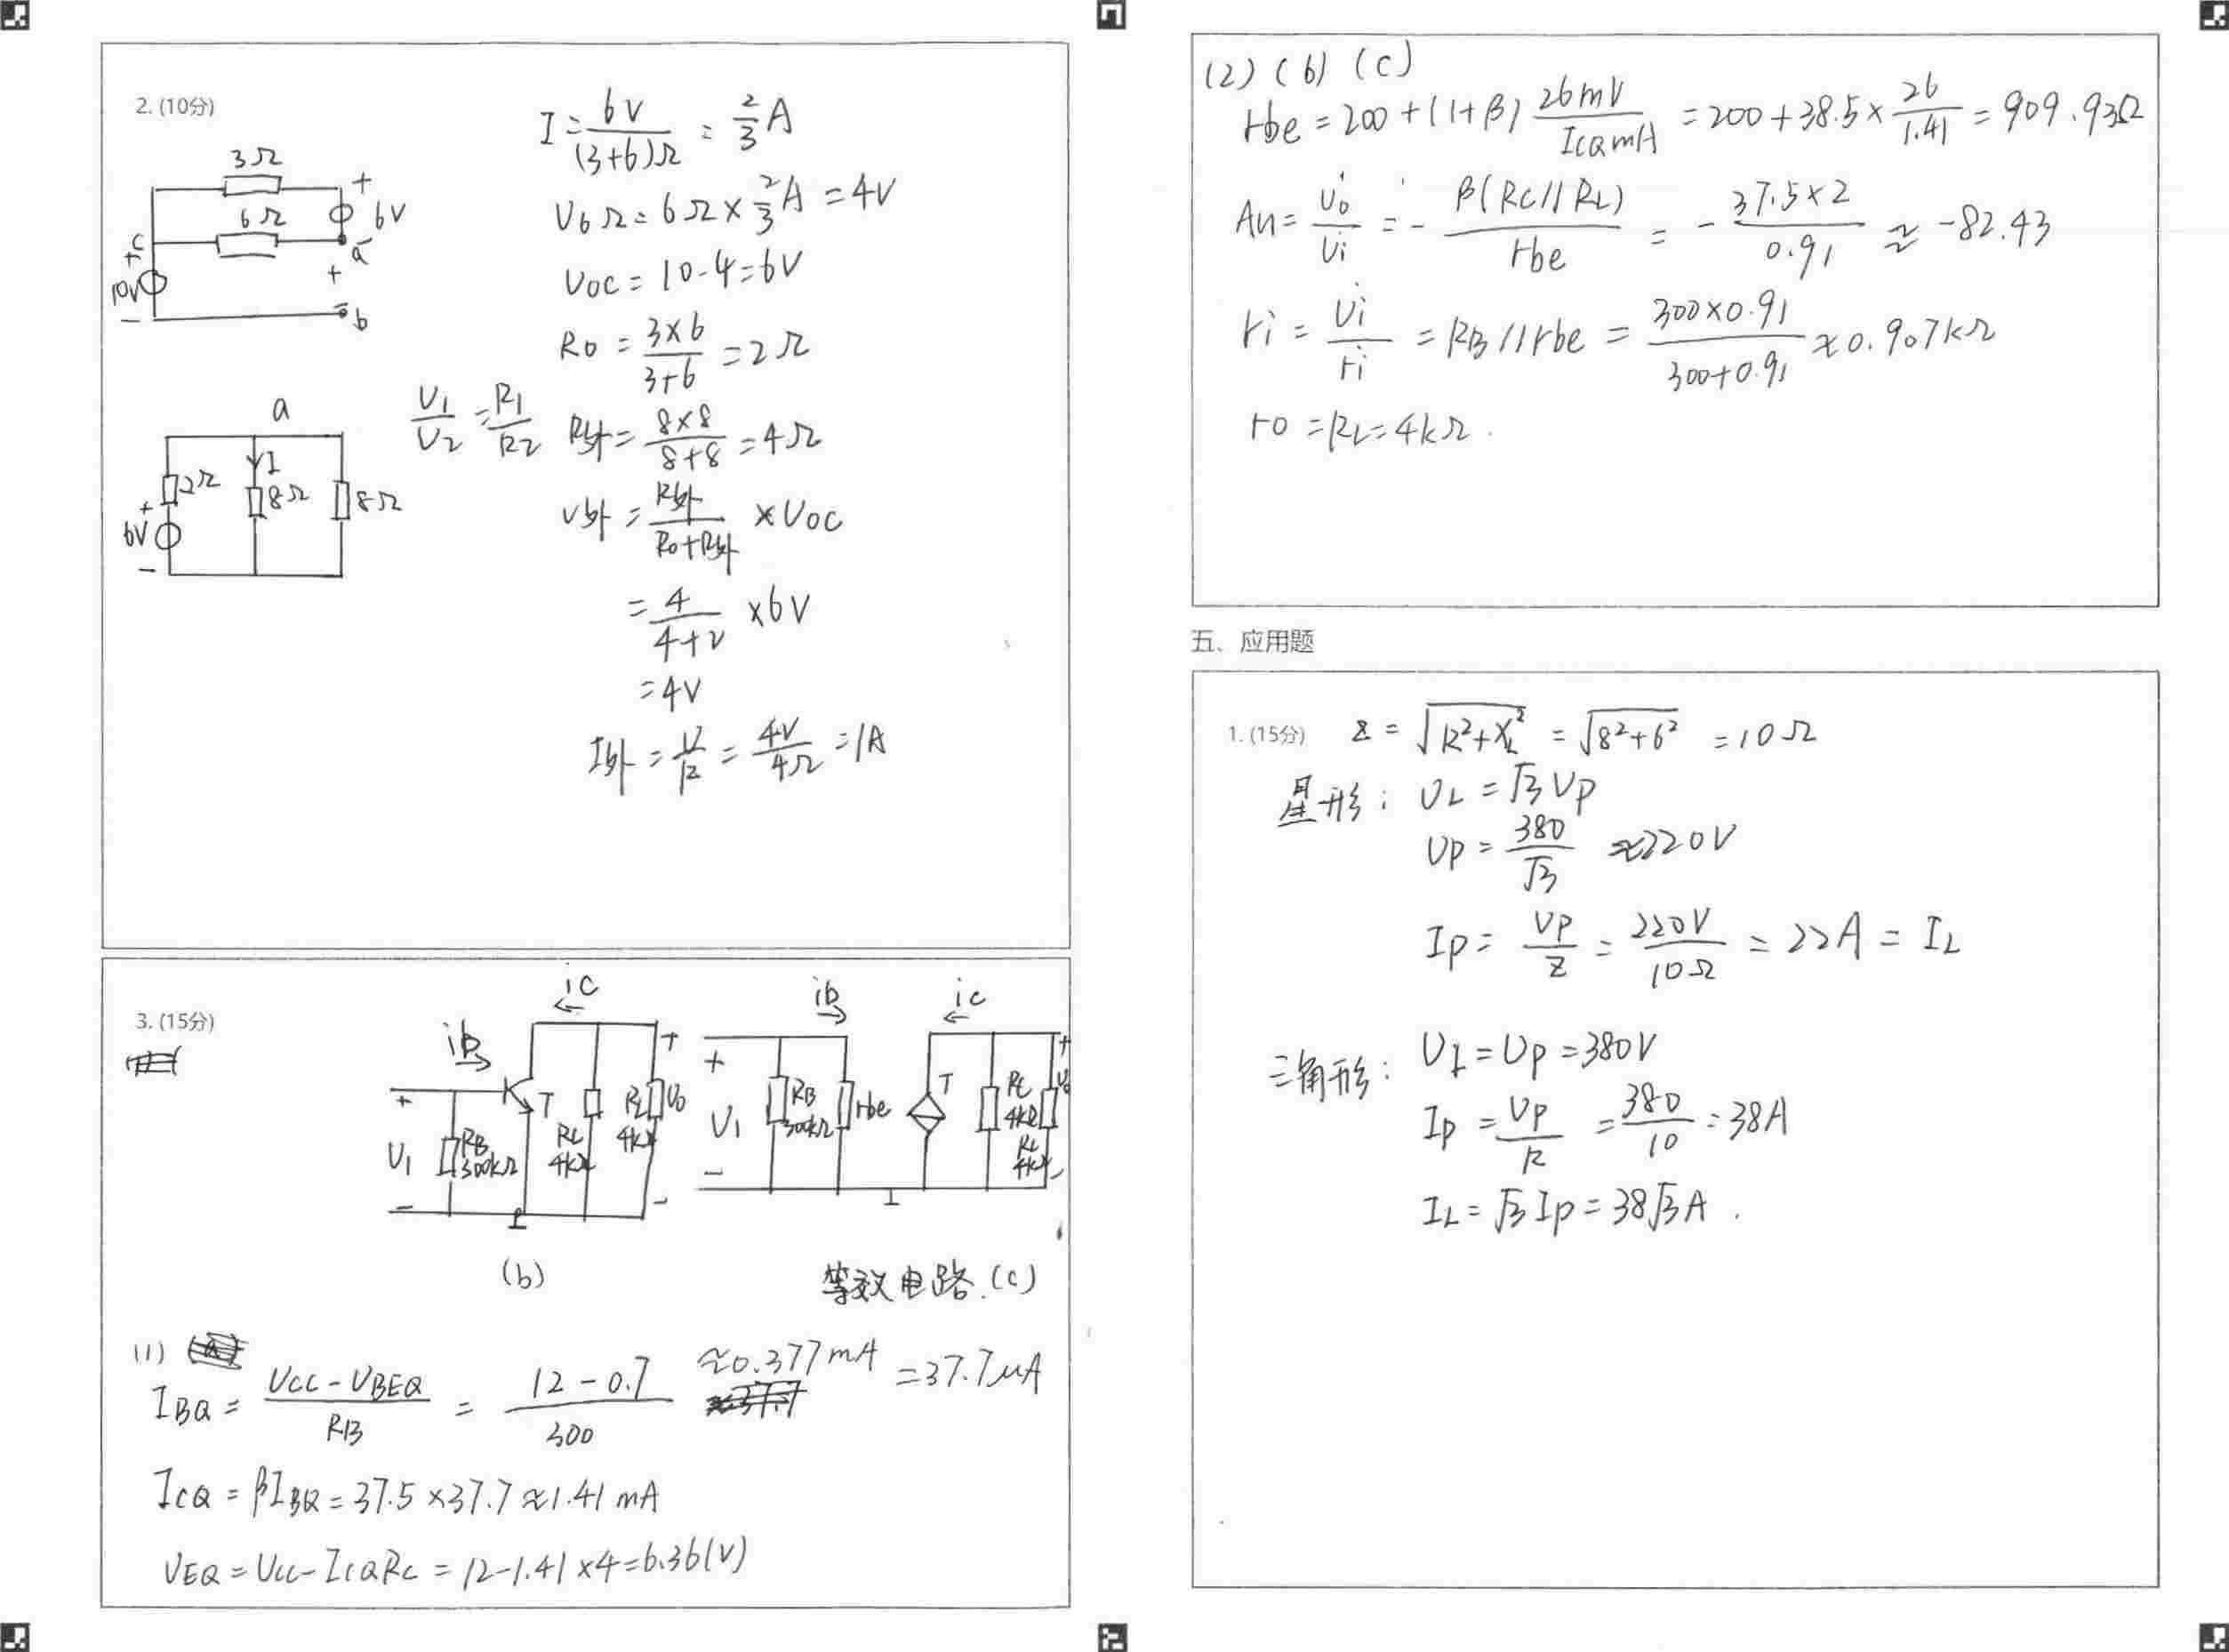 2. (10分)
I = 6V / (3+6)Ω = 2/3 A
U6Ω = 6Ω × 2/3 A = 4V
Uoc = 10-4 = 6V
Ro = 3×6 / 3+6 = 2Ω
U1/U2 = R1/R2
R外 = 8×8 / 8+8 = 4Ω
U外 = R外 / Ro+R外 × Uoc
= 4 / 4+2 × 6V
= 4V
I外 = U/R = 4V/4Ω = 1A
3Ω
+
6Ω
6V
c
+
-
a
10V
+
-
-
b
a
2Ω
I
8Ω
8Ω
+
6V
-
3. (15分)
ic
ib
+
+
T
RB
300kΩ
RC
4kΩ
RL
4kΩ
U0
U1
-
-
(b)
ib
ic
+
+
U1
RB
300kΩ
rbe
T
RC
4kΩ
RL
4kΩ
U0
-
-
等效电路.(c)
(1)
IBQ = UCC-UBEQ / RB = 12-0.7 / 300 ≈0.377mA =37.7μA
ICQ = βIBQ = 37.5×37.7≈1.41mA
UEQ = UCC-ICQRC = 12-1.41×4=6.36(V)
(2) (b) (c)
rbe = 200+(1+β) 26mV / ICQmA = 200+38.5× 26/1.41 = 909.93Ω
Au = U̇o / U̇i = - β(RC//RL) / rbe = - 37.5×2 / 0.91 ≈ -82.43
ri = U̇i / ri = RB//rbe = 300×0.91 / 300+0.91 ≈0.907kΩ
ro = RL=4kΩ.
五、应用题
1. (15分) Z = √R²+XL² = √8²+6² = 10Ω
星形: UL = √3 UP
UP = 380/√3 ≈220V
IP = UP/Z = 220V/10Ω = 22A = IL
三角形: UL = UP = 380V
IP = UP/R = 380/10 = 38A
IL = √3 IP = 38√3 A.